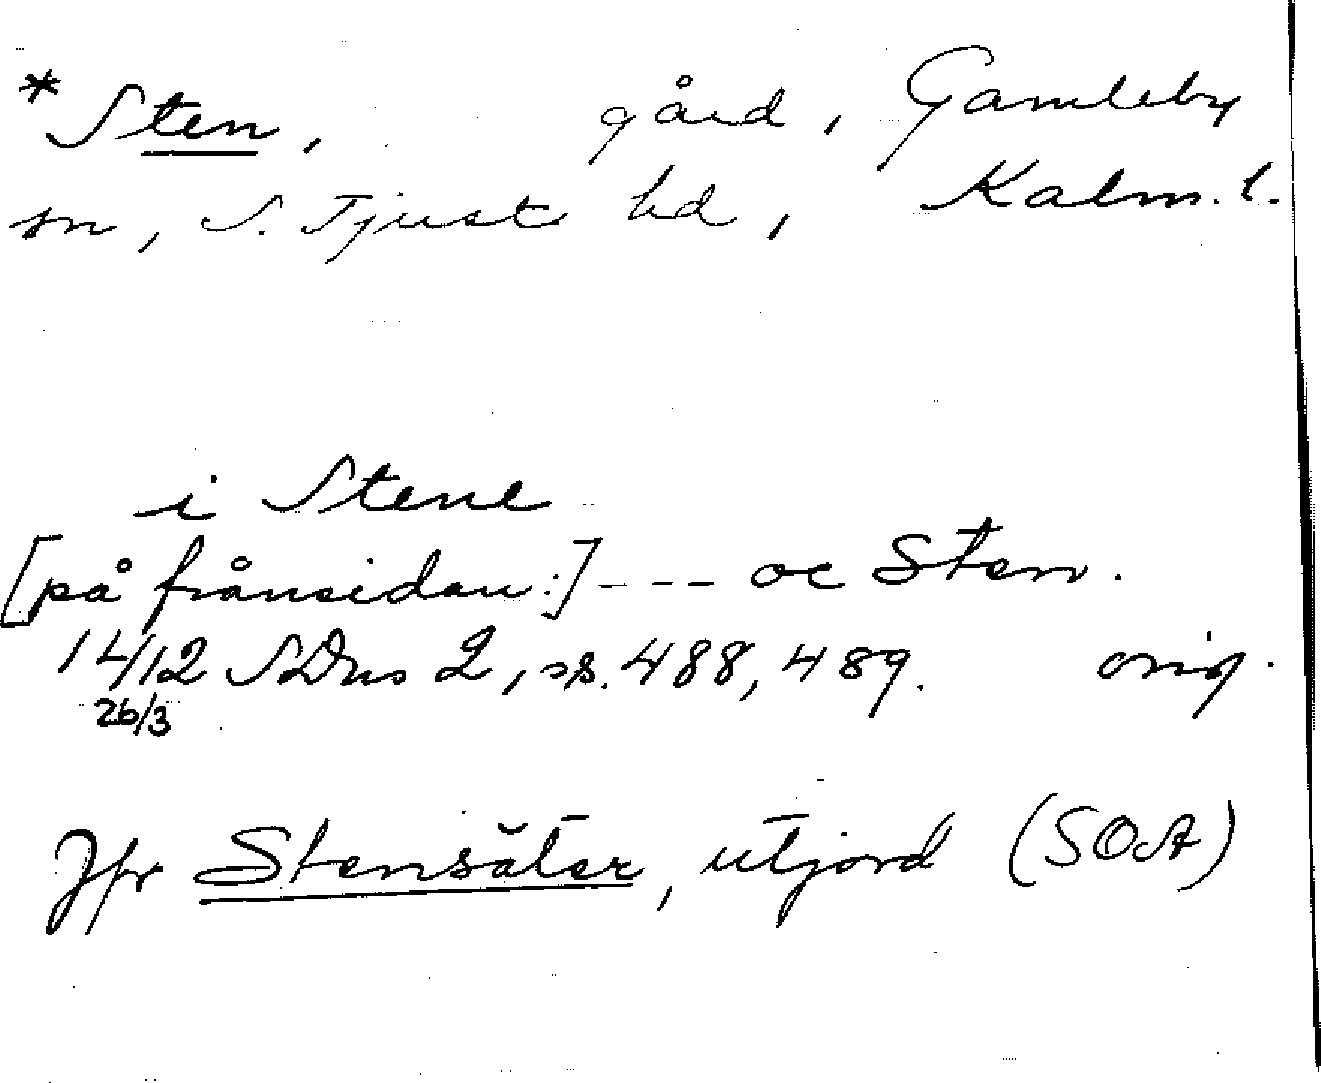 *Sten, gård, Gamleby
sn, S. Tjust hd, Kalm. l.
i Stene
[på frånsidan:] --- oc Sten.
1412 SDns 2, ss. 488, 489. orig.
26/3
Jfr Stensäter, utjord (SOA)